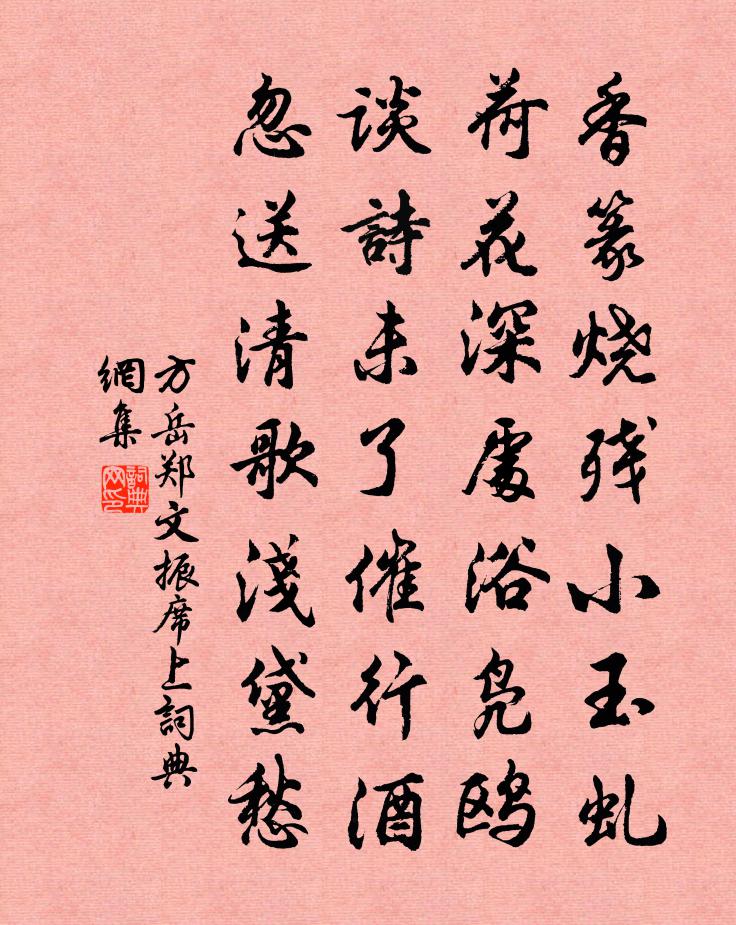 香篆烧残小玉虬
荷花深處浴凫鸥
谈詩未了催行酒
忽送清歌淺黛愁
方岳郑文振席上詞典
網集
詞典網印